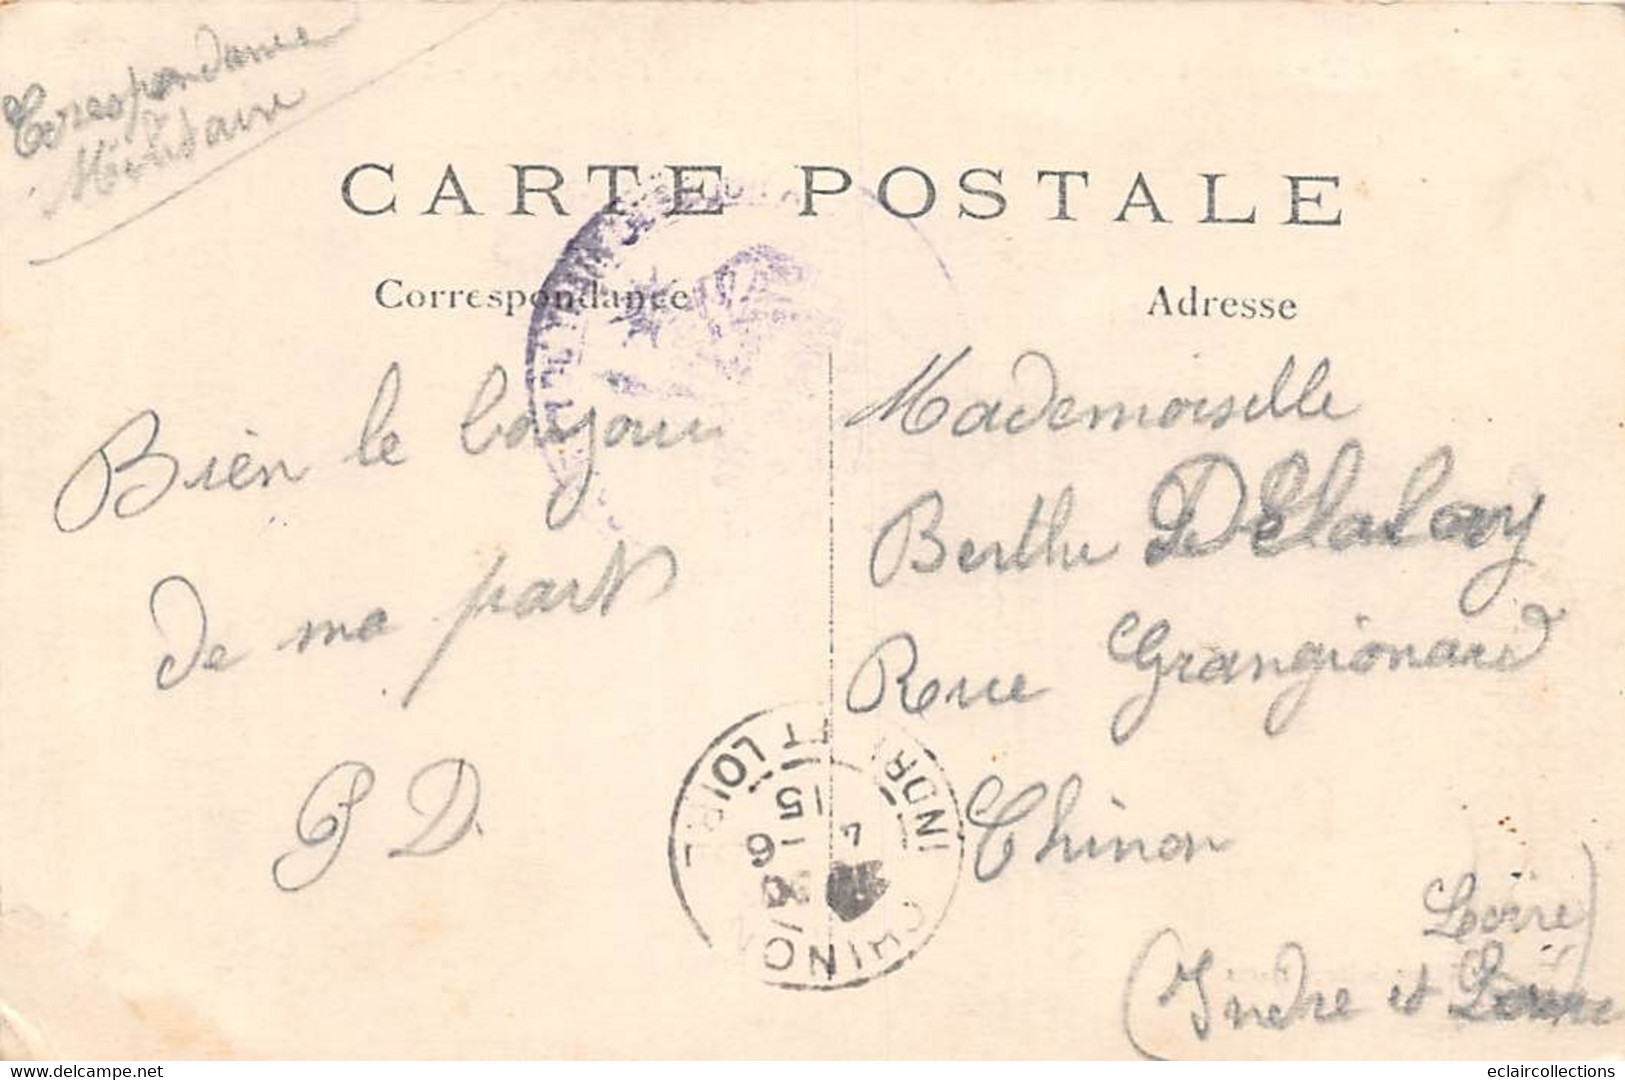 Correspondance
Militaire
CARTE POSTALE
Correspondance
Adresse
Bien le bonjour
de ma part
P D.
Mademoiselle
Berthe Delalay
Rue Grangionard
Chinon
Loire)
(Indre et Loire
CHINON
INDRE ET LOIRE
15 - 6
4
www.delcampe.net
eclaircollections